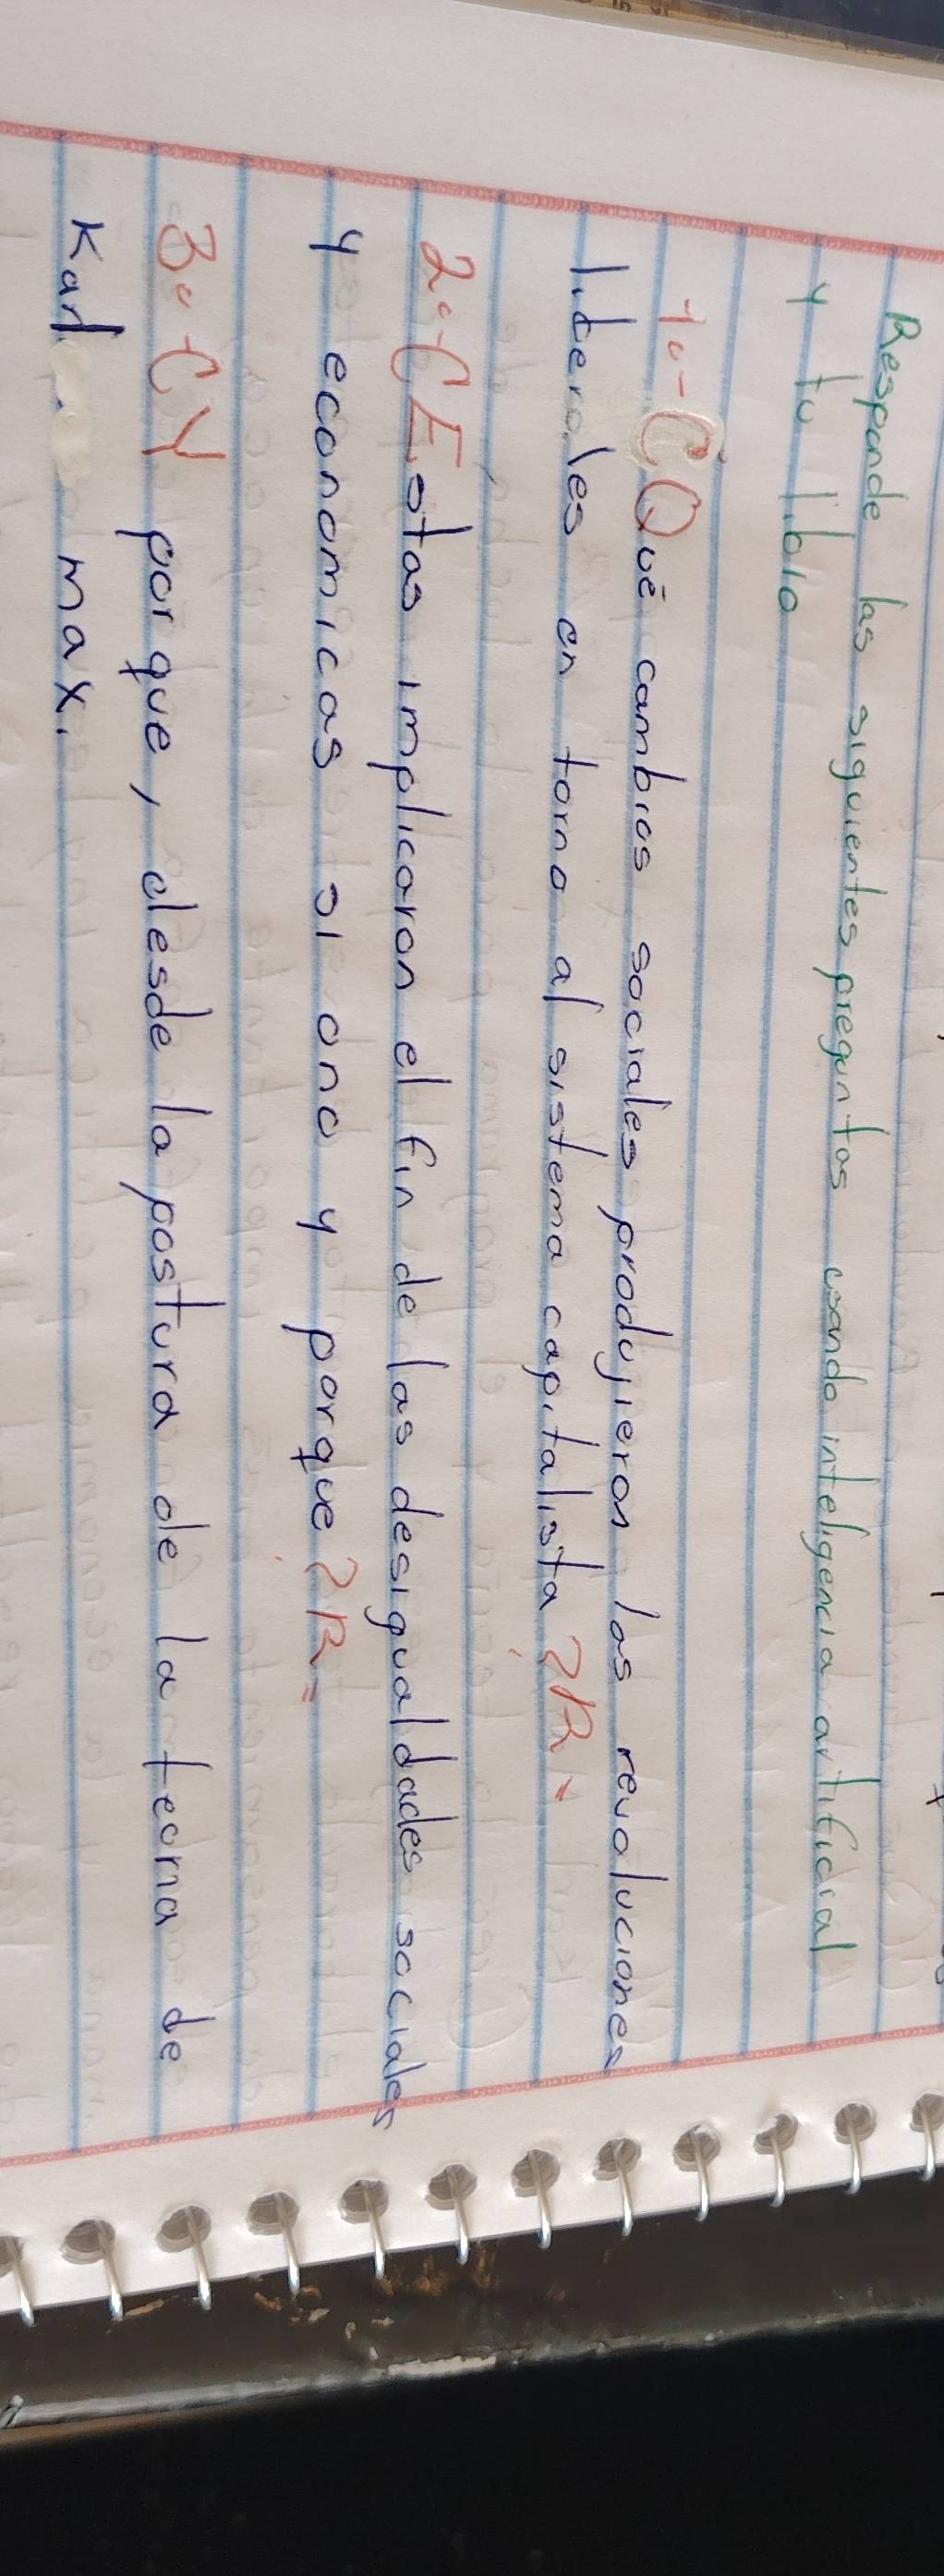 Responde las siguientes preguntas usando inteligencia artificial
y tu libro
1.-¿Qué cambios sociales produjieron las revoluciones
liberales en torno al sistema capitalista?R=
2.-¿Estas implicaron el fin de las desigualdades sociales
y economicas si ono y porque?R=
3.-¿Y por que, desde la postura de la teoria de
Karl max.